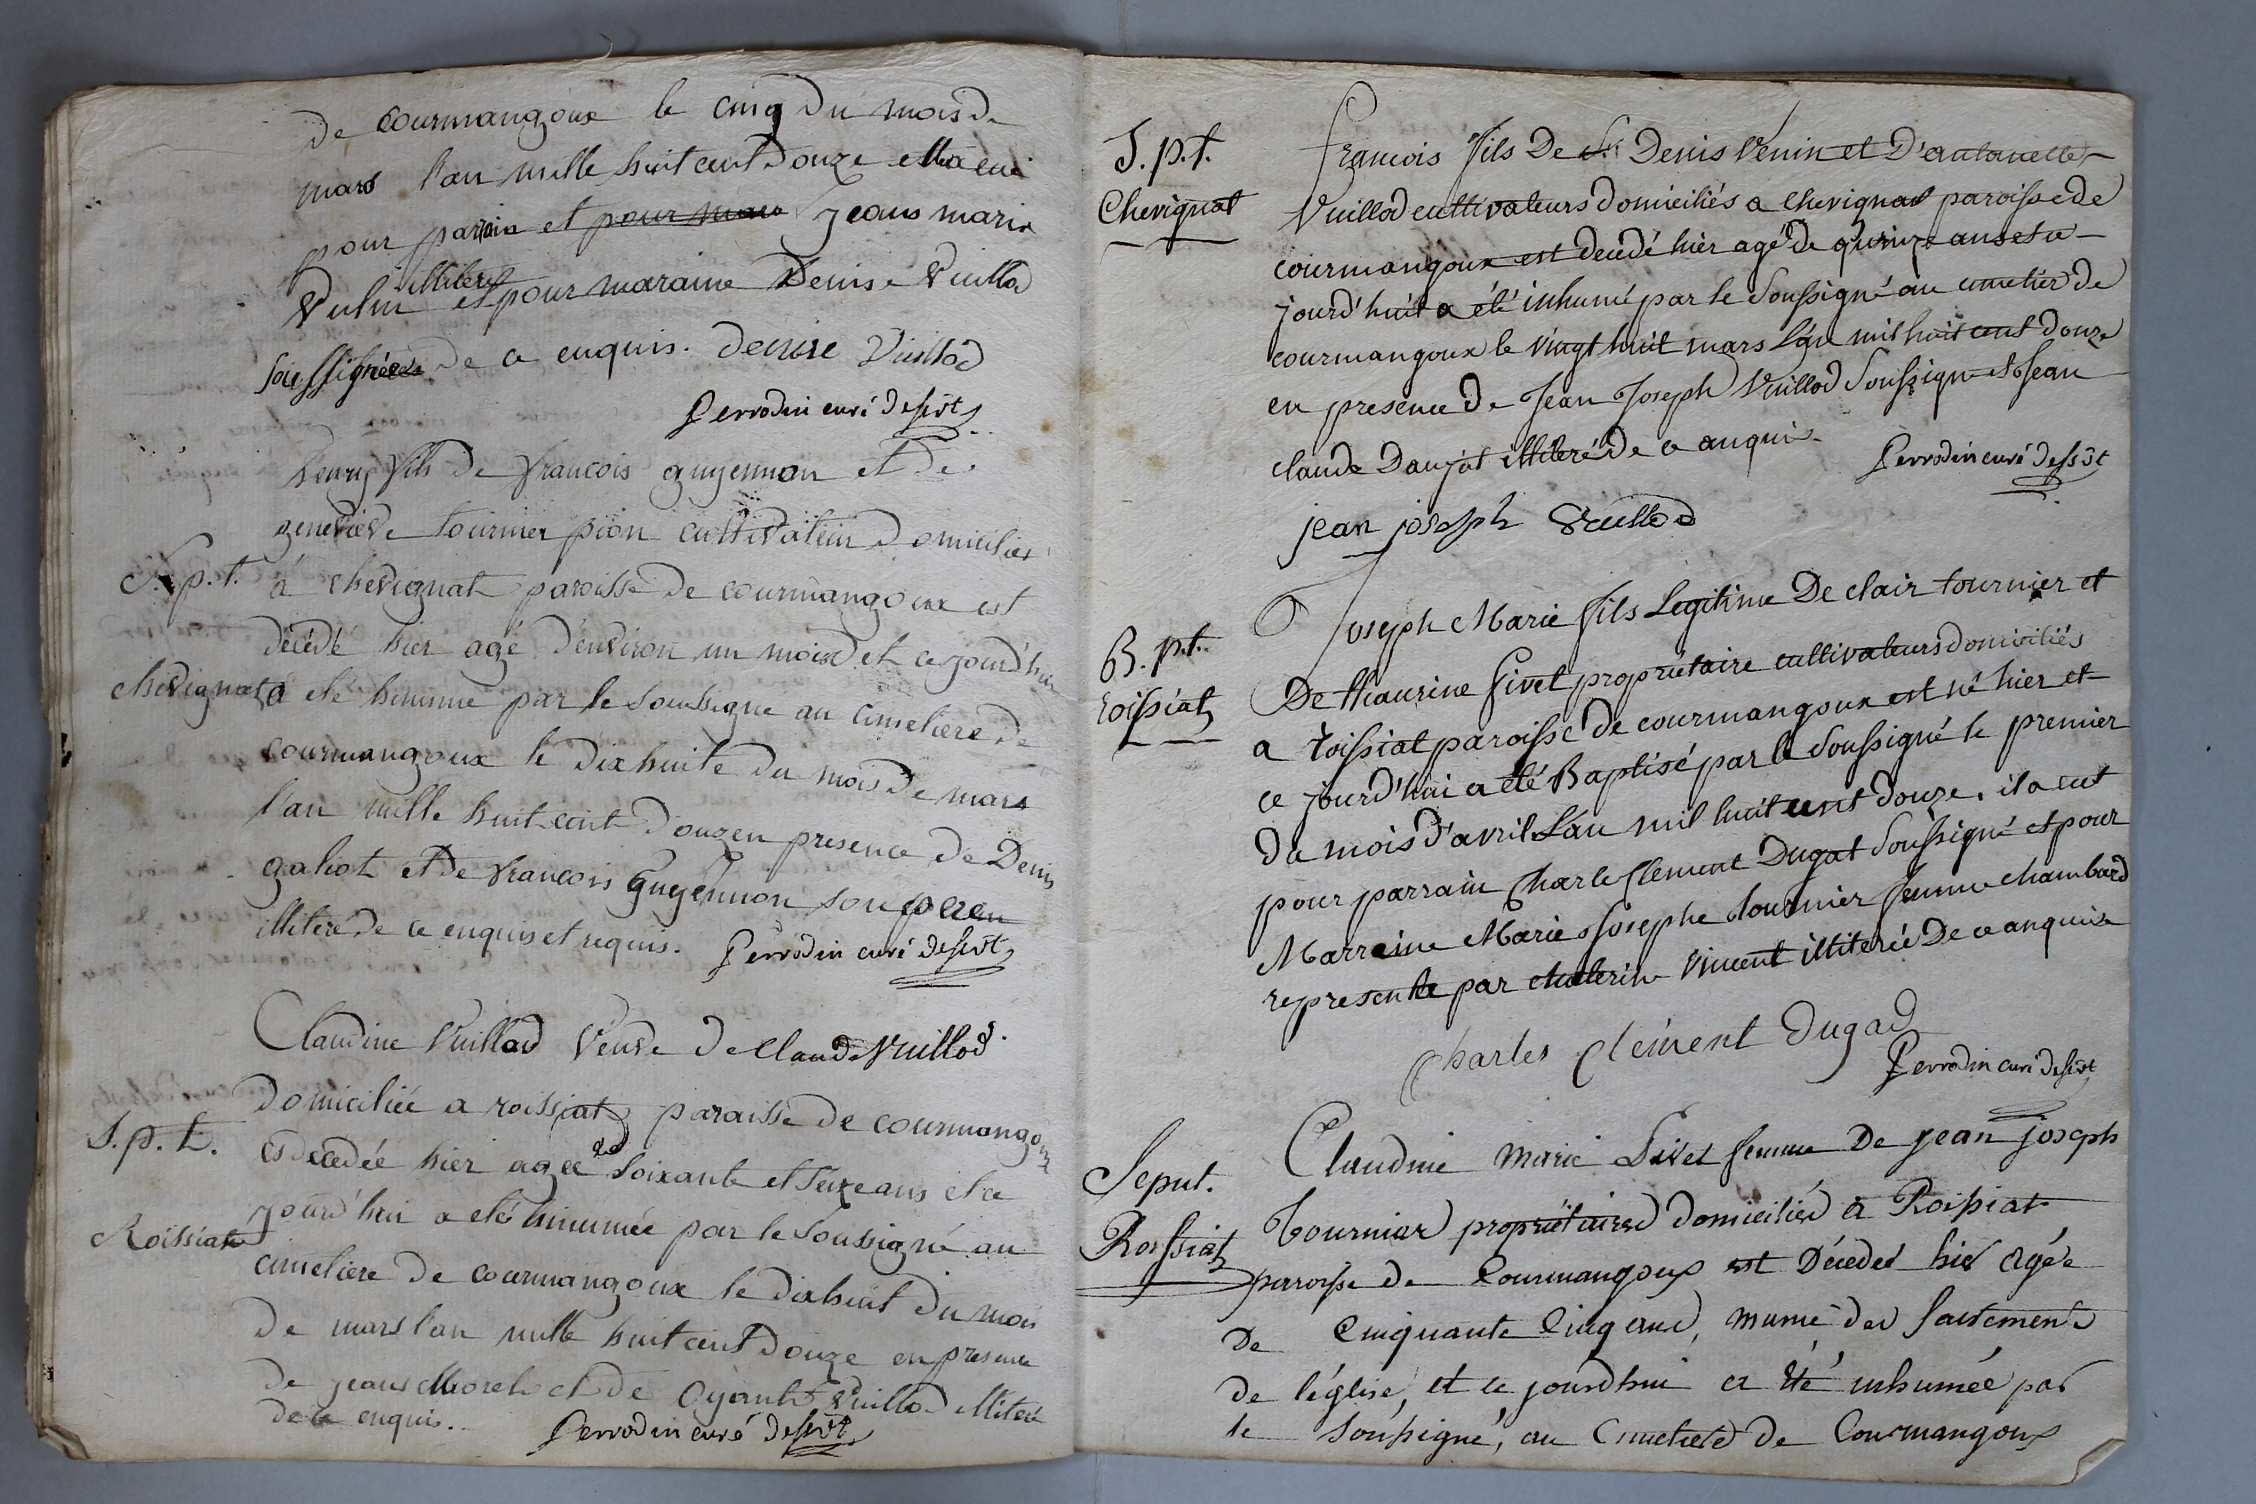 de courmangoux le cinq du mois de
mars l'an mille huit cent douze
pour parrin et pour mara jeans marie
Vulin illiteré et pour maraine Denise Vuillod
soussignée de ce enquis. denise Vuillod
Perrodin curé dessvt
henry fils de francois guyennon et de
genevieve tournier pion cultivateur domicilies
S. p. t.
á chevignat paroisse de courmangoux est
décédé hier agé d'environ un mois et ce jourd'hui
chevignat
a eté hinumé par le soussigne au cimetiere de
courmangoux le dix huite du mois de mars
l'an mille huit cent douze en presence de Denis
gahot et de francois Guyennon son peren
illiteré de ce enquis et requis. Perrodin curé dessvt
Claudine Vuillod Veuve de Claude Vuillod
domiciliée a roissiat paraisse de courmangoux
S. p. t.
es decedée hier agee de soixante et seize ans et ce
jourd'hui a eté hinumée par le soussigné au
Roissiat
cimetiere de courmangoux le dixhuit du mois
de mars l'an mille huit cent douze en presence
de jeans Morel et de Oyant Vuillod illiteré
de ce enquis.
Perrodin curé dessvt
S. p. t.
Chevignat
francois fils De Denis Vénin et D'antoinette
Vuillod cultivateurs domiciliés a chevignat paroisse de
courmangoux est decedé hier agé de quinze ans et ce
jourd'huit a été inhumé par le soussigné au cimetier de
courmangoux le vingt huit mars l'an mil huit cent douze
en presence de Jean Joseph Vuillod soussigne et Jean
claude Daujat illiteré de ce anquis
Perrodin curé dessvt
jean joseph Vuillod
B. p. t.
roissiat
Joseph Marie fils Legitime De clair tournier et
De thaurine fivet propriétaire cultivateurs domiciliés
a roissiat paroisse de courmangoux est né hier et
ce jourd'hui a été Baptisé par le soussigné le premier
du mois d'avril L'an mil huit cent douze, il a eut
pour parrain Charle Clement Dugat soussigné et pour
Marraine Marie Josephe tournier femme chambard
represente par chaterine Vincent illiterée De ce anquise
Charles Clément Dugad
Perrodin curé dessvt
Seput.
Roissiat
Claudine Marie Livet femme De jean joseph
Tournier propriétaires domiciliés à Roissiat
parroisse de Courmangoux est Décedée hier agée
De Cinquante Cinq ans, munie des Sacrements
de l'église, et ce jourdhui a été inhumée par
le soussigné, au Cimetiere de Courmangoux